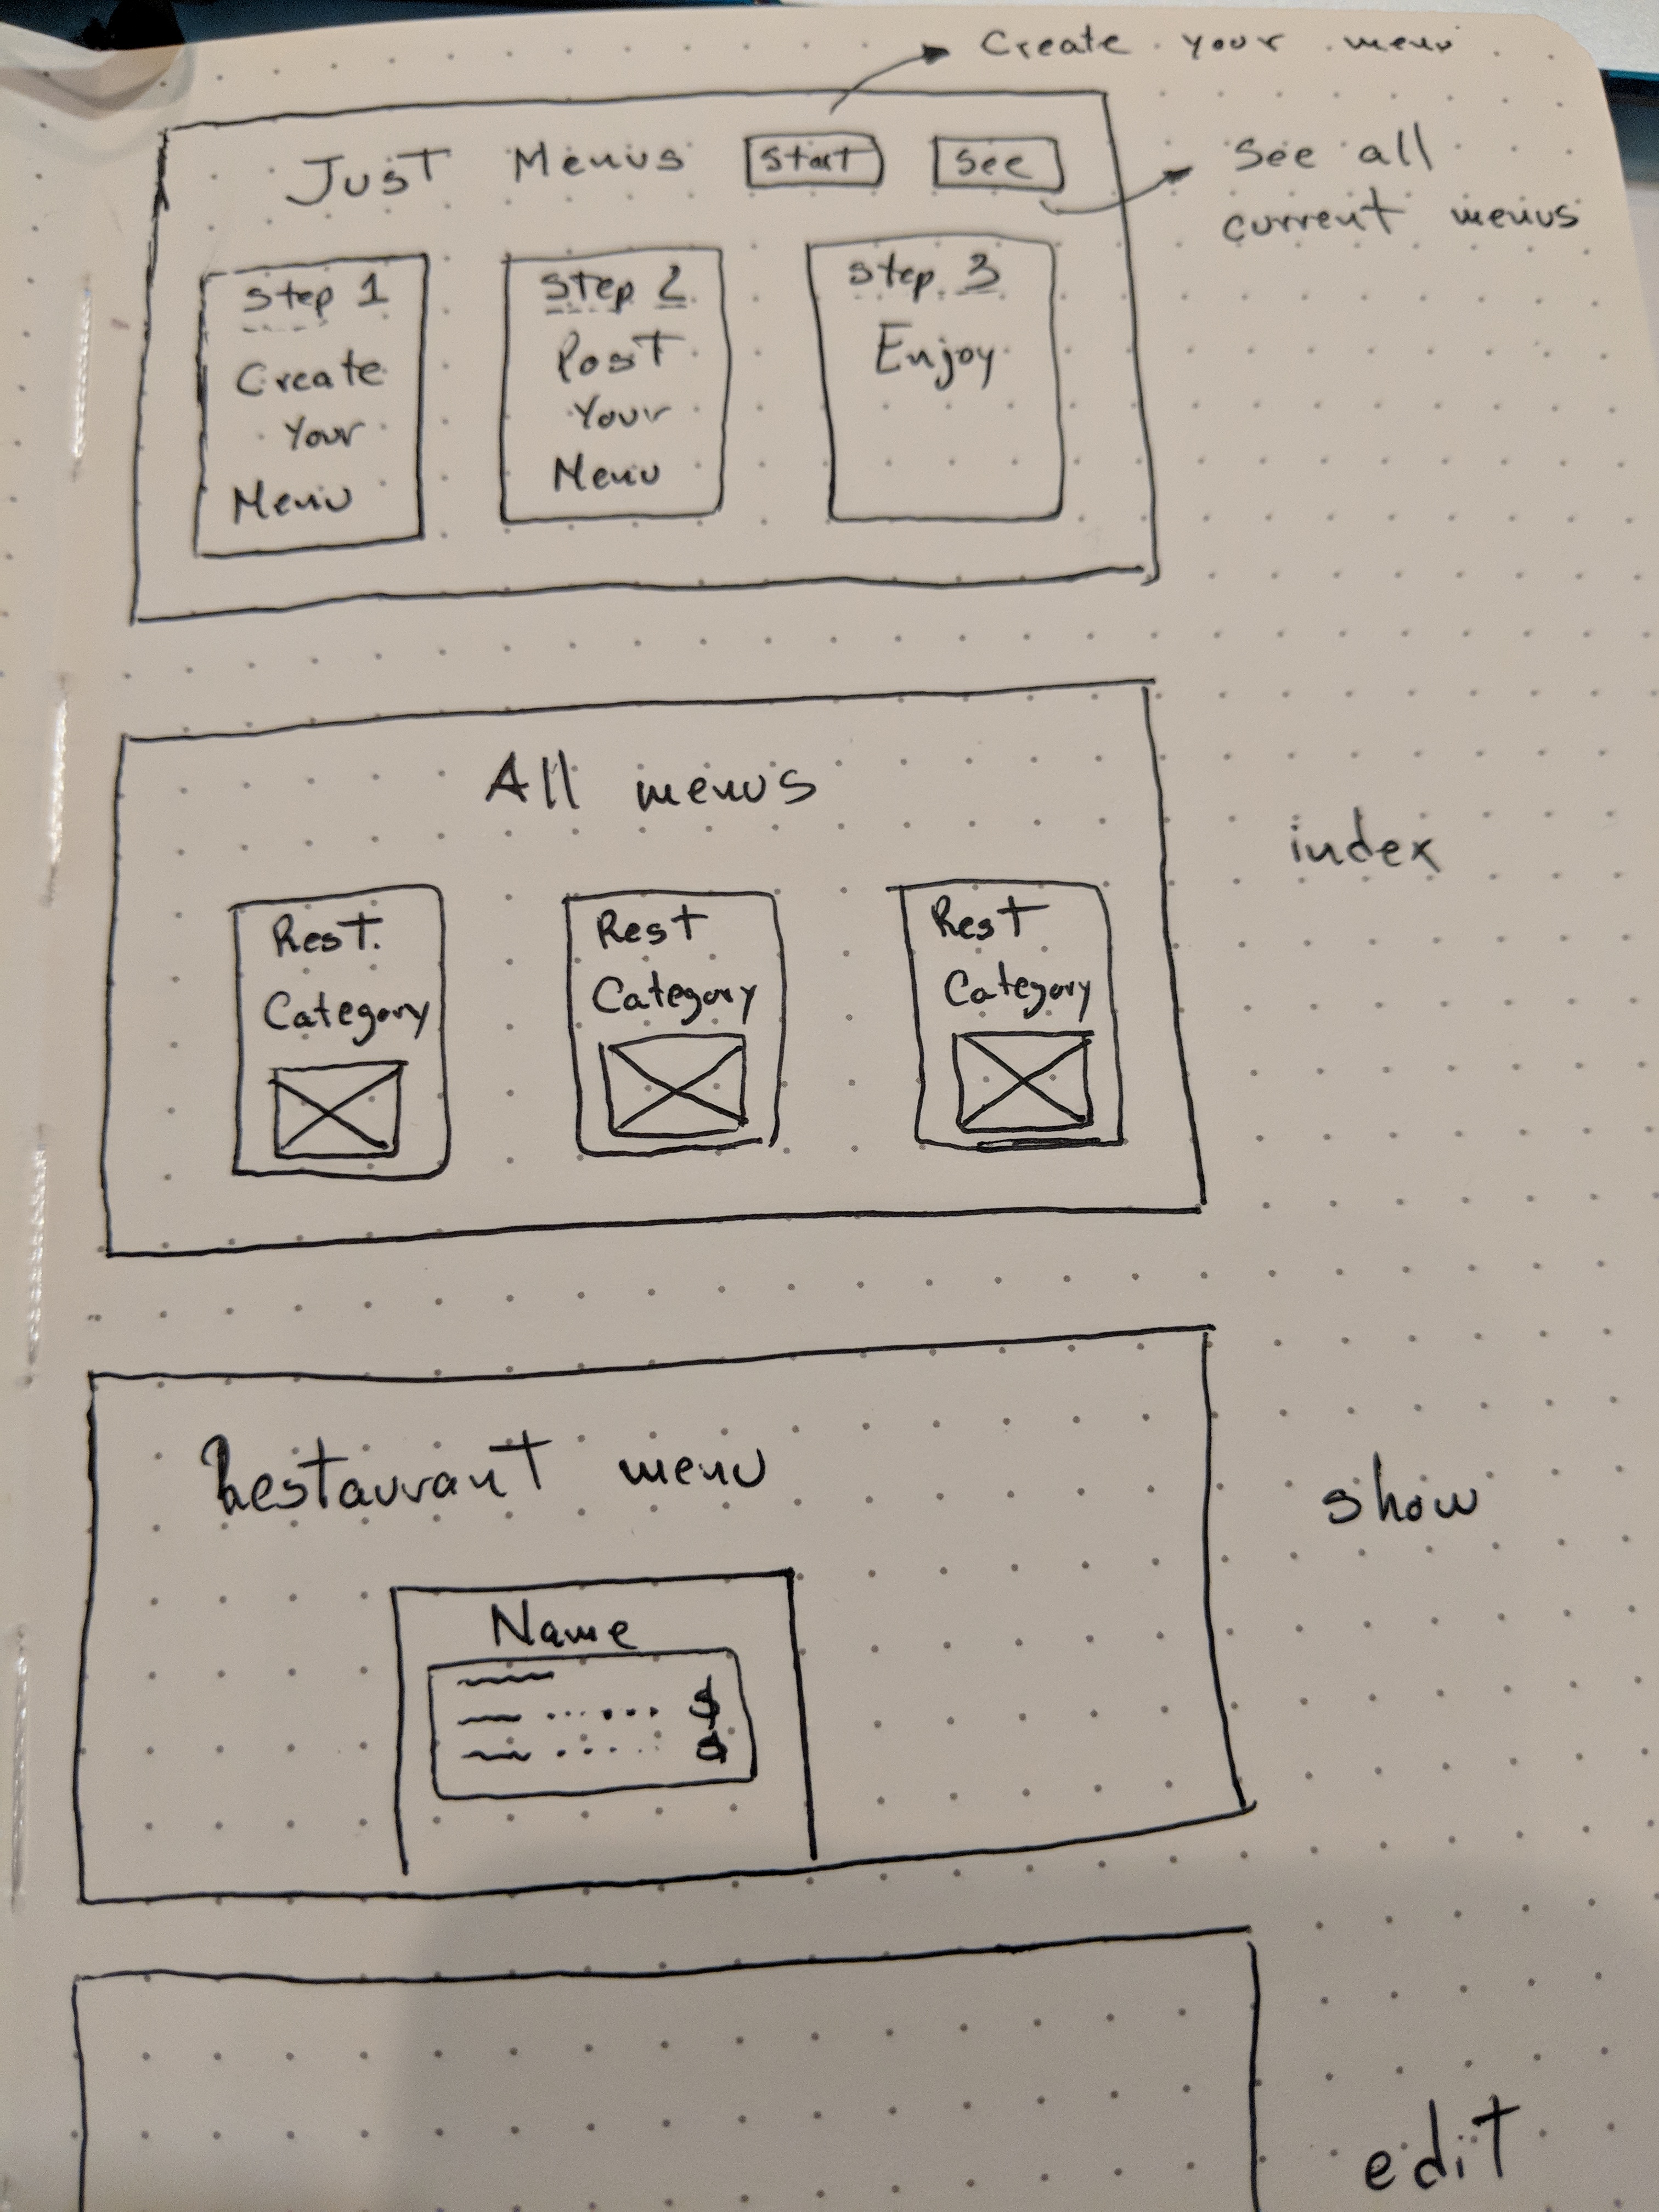 Create your menu
Just Menus Start See
See all
current menus
Step 1
Create
Your
Menu
Step 2
Post
Your
Menu
Step 3
Enjoy
All menus
index
Rest.
Category
Rest
Category
Rest
Category
Restaurant menu
show
Name
$
$
edit